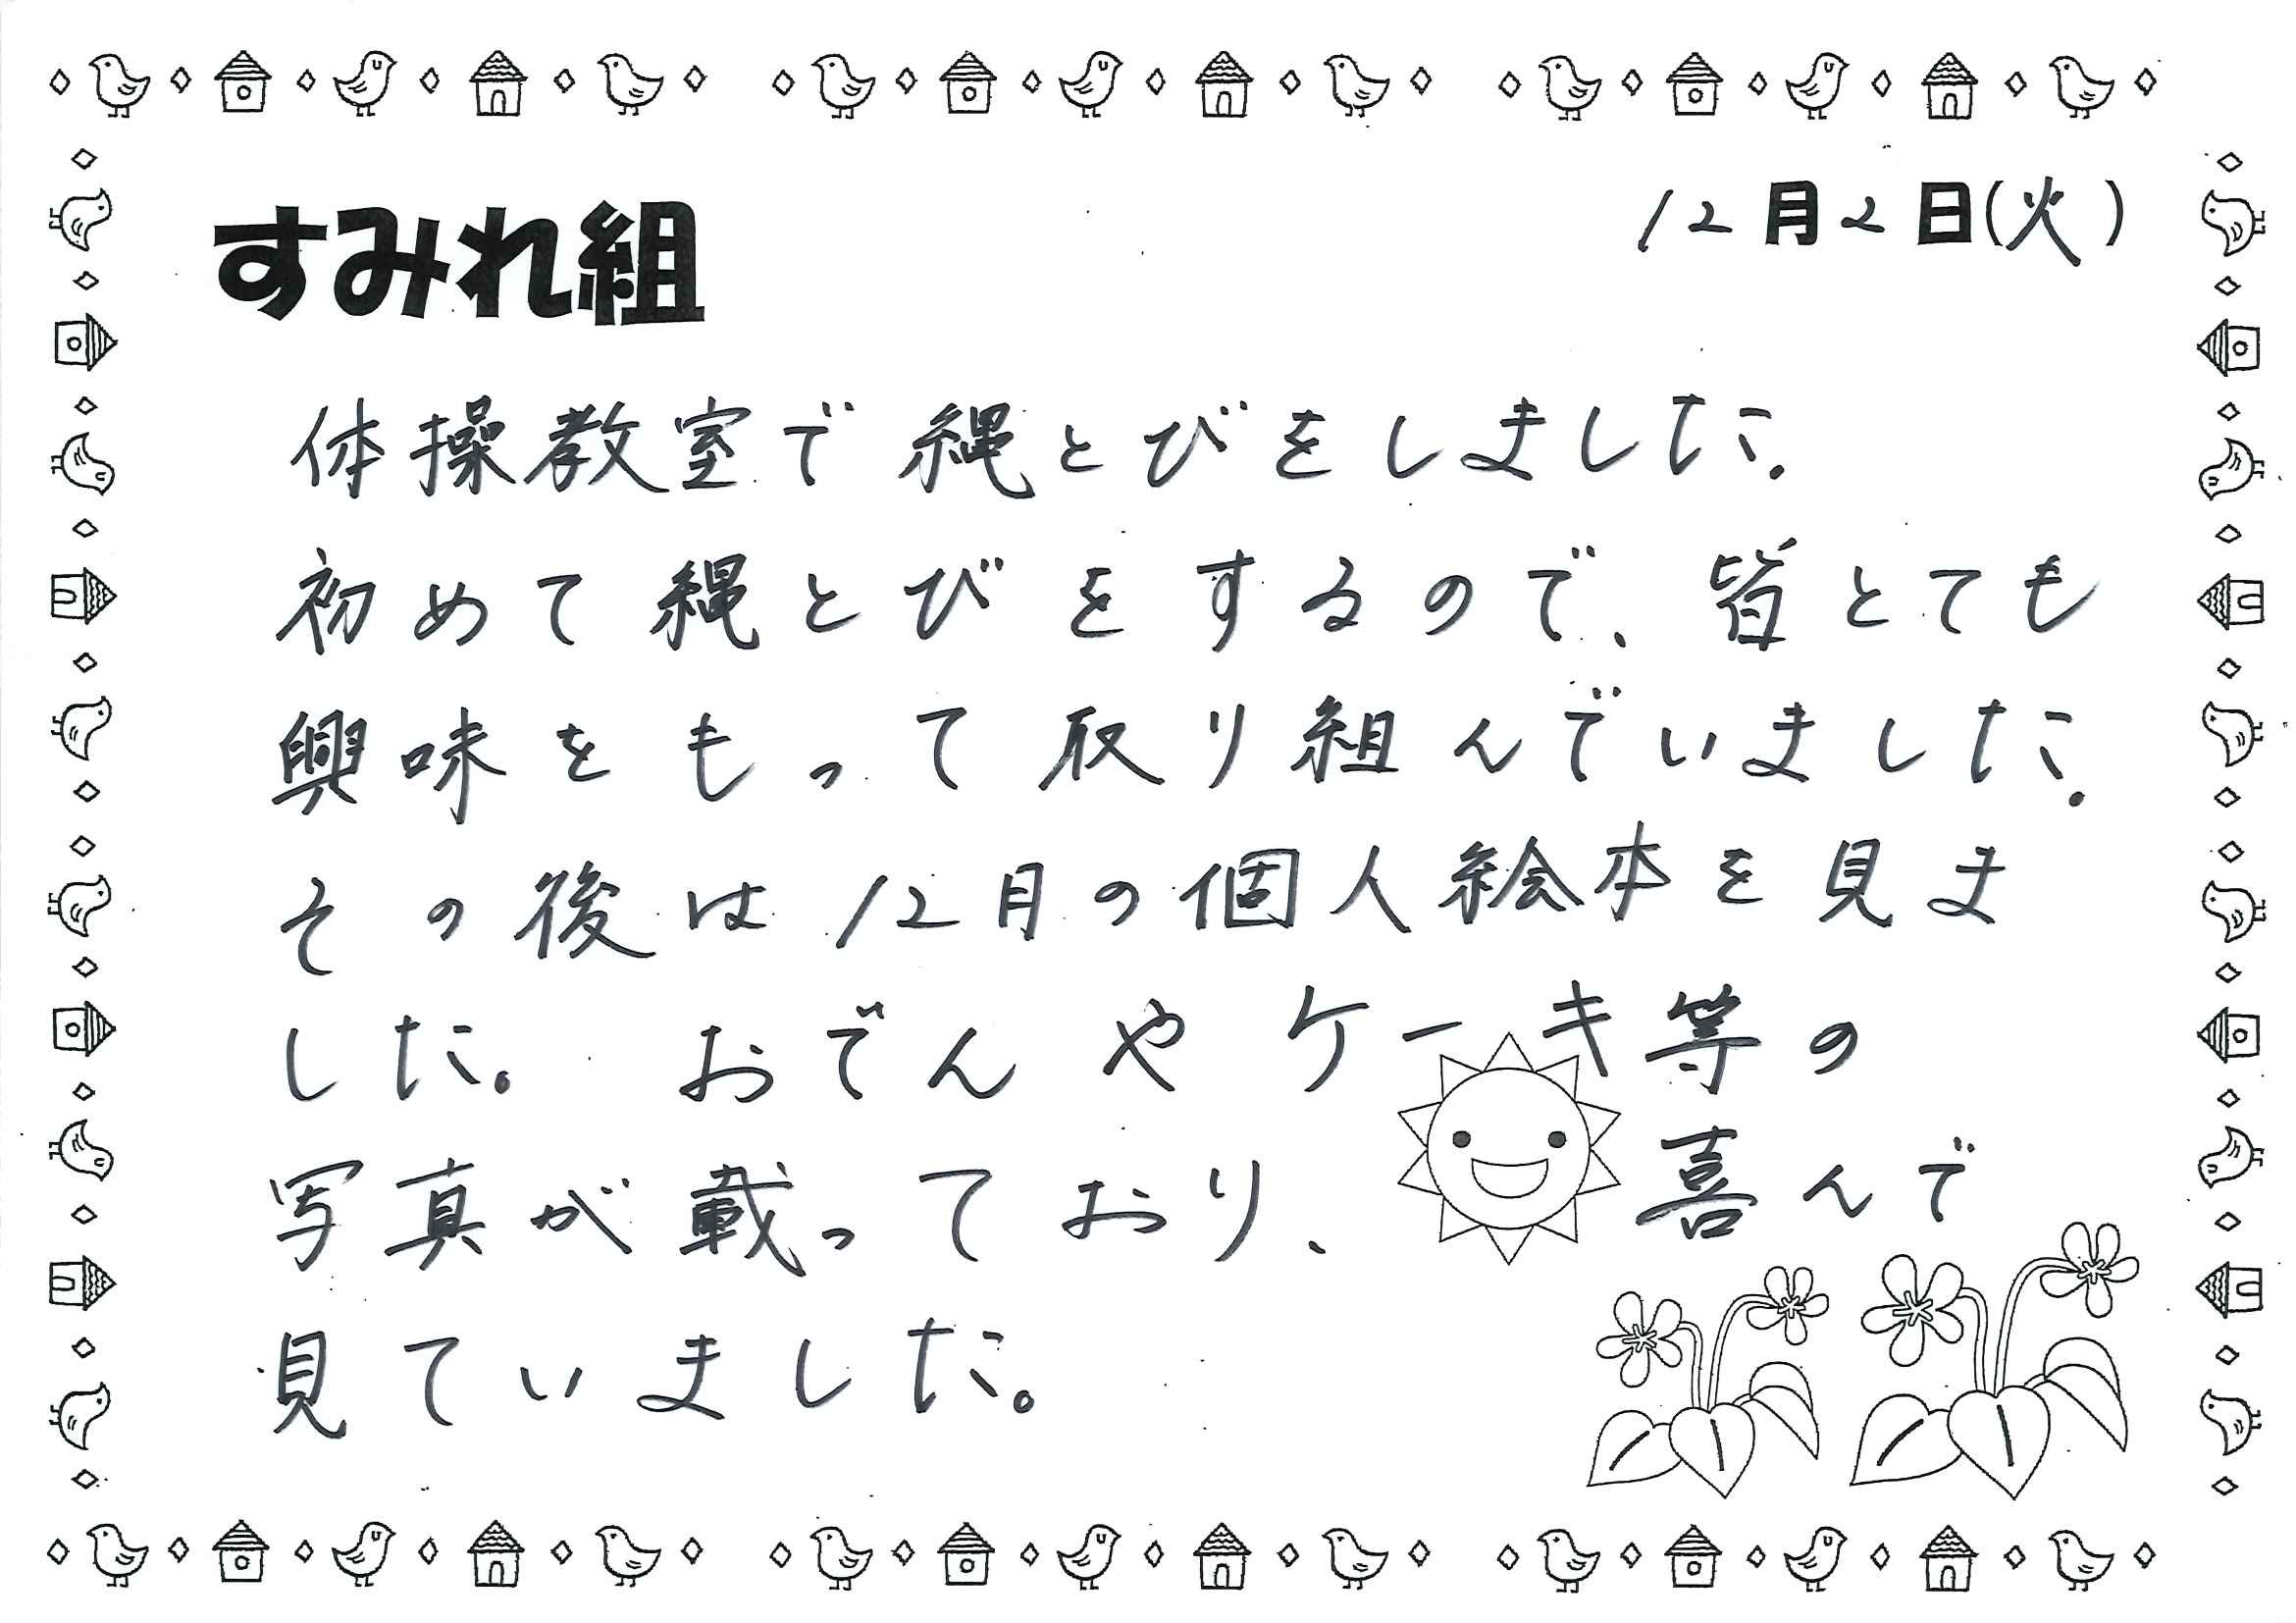 すみれ組
12月2日(火)
体操教室で縄とびをしました。
初めて縄とびをするので、皆とても
興味をもって取り組んでいました。
その後は12月の個人絵本を見ま
した。おでんやケーキ等の
写真が載っており、喜んで
見ていました。